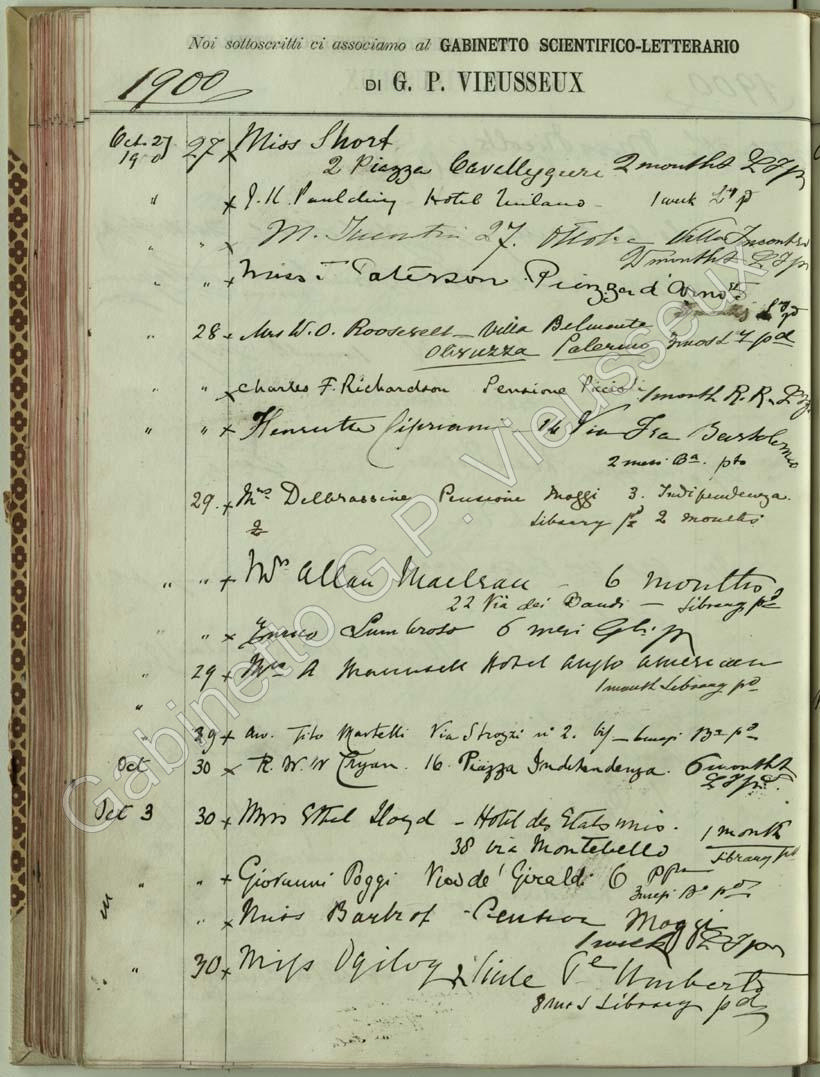 Noi sottoscritti ci associamo al GABINETTO SCIENTIFICO-LETTERARIO
1900
DI G. P. VIEUSSEUX
Oct. 27 27 x Miss Short
1900
2 Piazza Cavalleggeri 2 months
" x J. K. Paulding Hotel Milano 1 week
" " x 27. Ottobre Villa Incontri
2 months
" " x Miss Paterson Piazza d'Arno
" 28 x Mrs W. O. Roosevelt - Villa Belmonte
Olivuzza Palermo 3 mos L 7 pd
" " x Charles F. Richardson Pensione Piccioli 1 month R. R.
" " x Henrietta Cipriani 14 Via Fra Bartolomeo
2 mesi Ba. pto
29. x Mrs Delbrassine Pensione Moggi 3. Indipendenza.
2 Library pd 2 months
" " x Mrs Allan Maclean - 6 months
22 Via dei Bardi - Library pd
" x Enrico Lumbroso 6 mesi
" 29 x Mrs A Hotel Anglo American
1 month Library pd
"
" 29 x Avv. Tito Martelli Via Strozzi no 2. Ba pd
Oct 30 x R. W. W. Cryan. 16. Piazza Indipendenza. 6 months
Oct 3 30 x Mrs Ethel Lloyd - Hotel des Etats Unis. 1 month
38 via Montebello Library pd
" " x Giovanni Poggi Via de' Giraldi 6 pp
" " x Miss Pension Moggi
1 week
" 30 x Miss Ogilvy Viale Pe Umberto
Library pd
Gabinetto G.P. Vieusseux